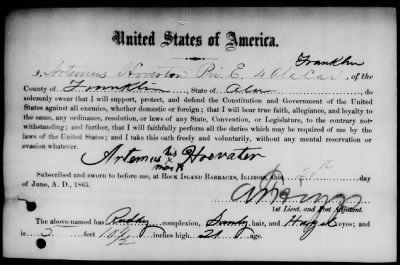 United States of America.
Franklin
I, Artemus Hoverton Pri E, 4 Ala Cav of the
County of Franklin, State of Ala do
solemnly swear that I will support, protect, and defend the Constitution and Government of the United
States against all enemies, whether domestic or foreign; that I will bear true faith, allegiance, and loyalty to
the same, any ordinance, resolution, or laws of any State, Convention, or Legislature, to the contrary not-
withstanding; and further, that I will faithfully perform all the duties which may be required of me by the
laws of the United States; and I take this oath freely and voluntarily, without any mental reservation or
evasion whatever.
Artemus his Hoovater
mark
Subscribed and sworn to before me, at ROCK ISLAND BARRACKS, ILLINOIS, this 20th day
of June, A. D., 1865.
1st Lieut. and Post Adjutant.
The above-named has Ruddy complexion, Sandy hair, and Hazel eyes; and
is 5 feet 10 1/2 inches high, 21 age.